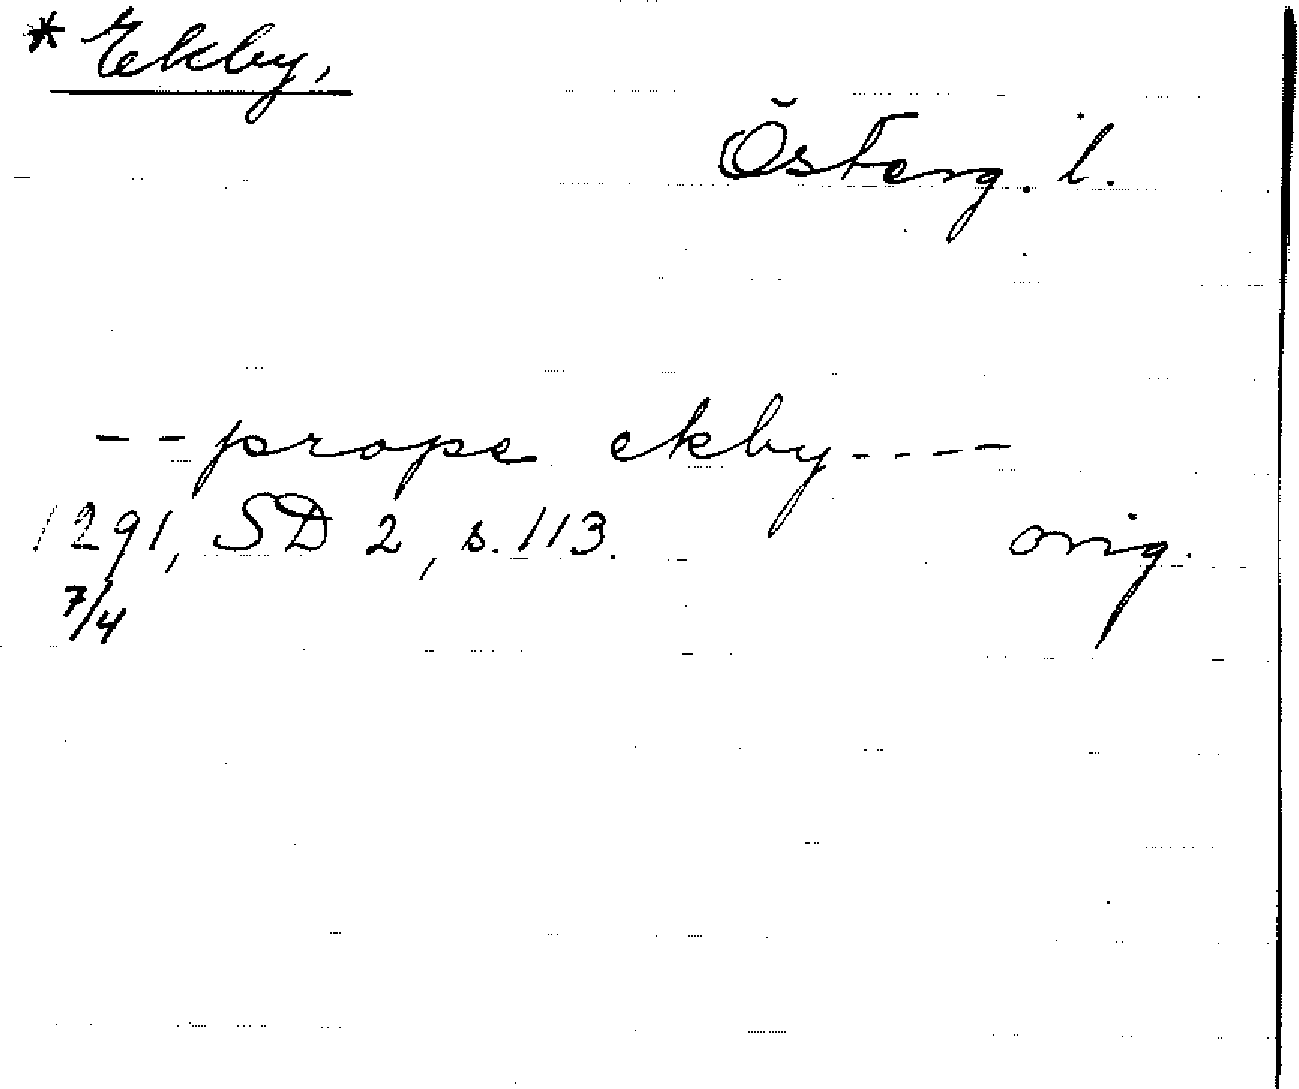 * Ekby,
Österg. l.
-- prope ekby ----
1291, SD 2, s. 113. orig.
7/4